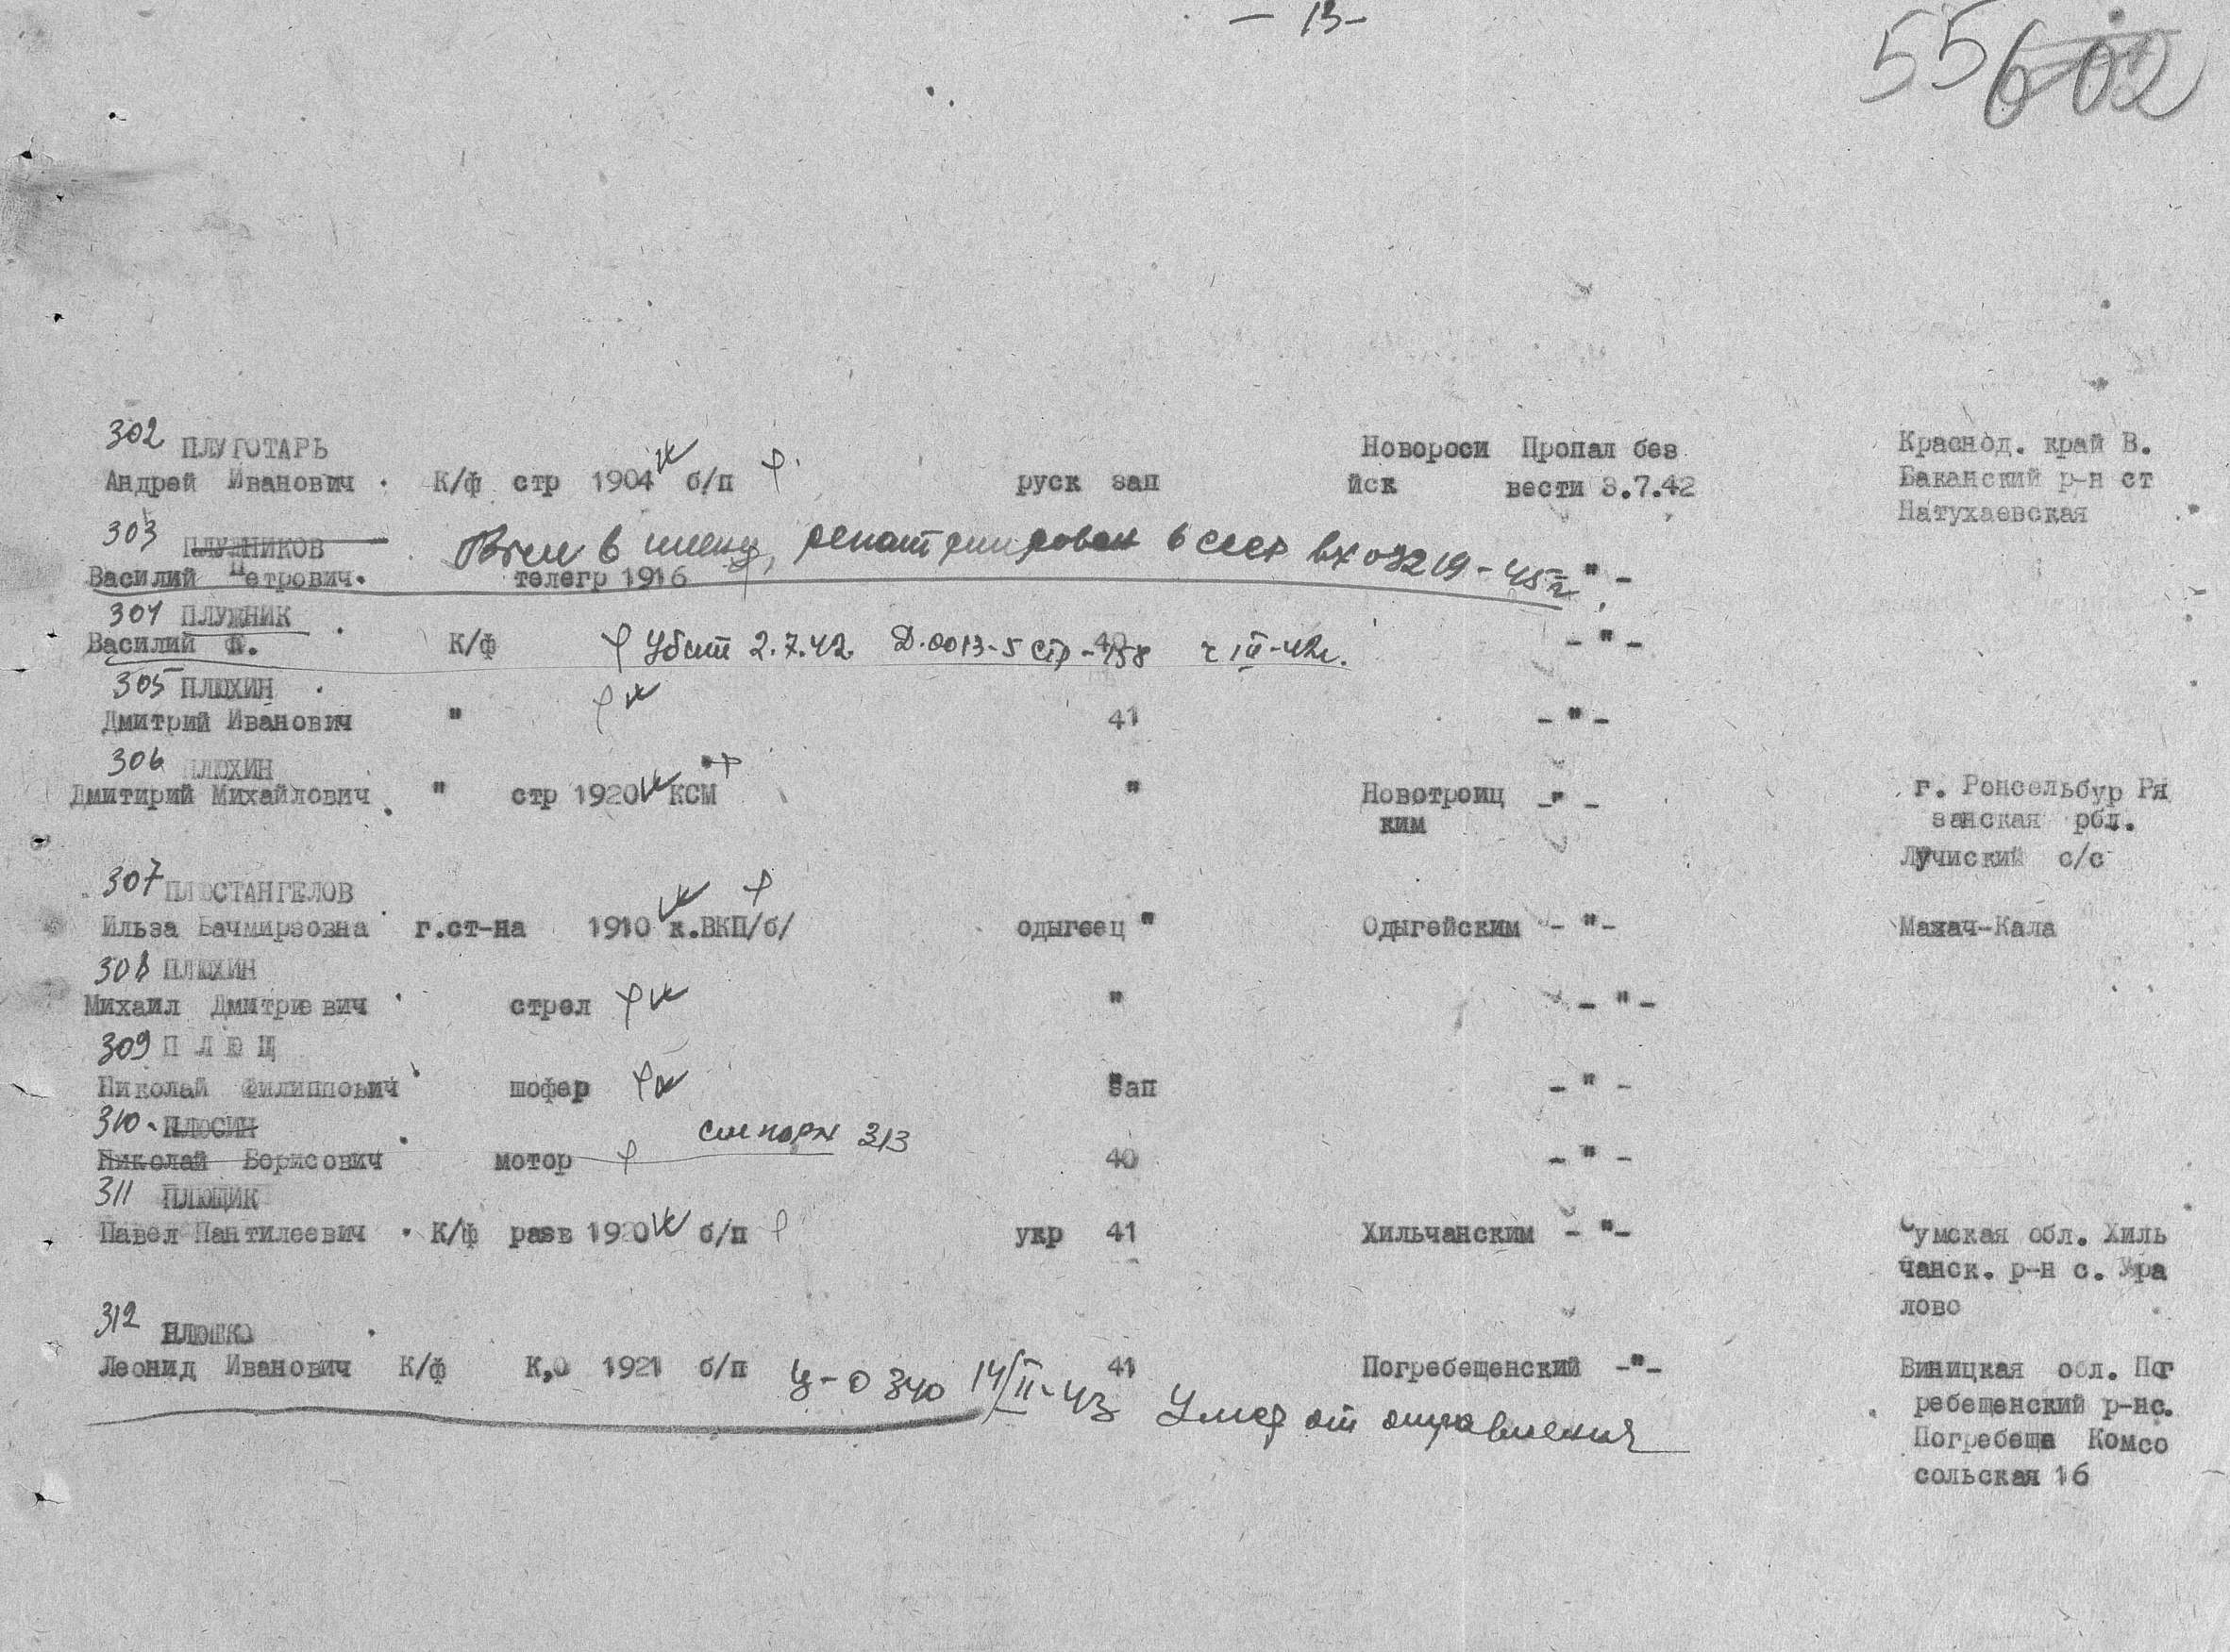 - 13 -
55 602
302 ПЛУГОТАРЬ Новороси Пропал без Краснод. край В.
Андрей Иванович . К/ф стр 1904 б/п руск зап йск вести 3.7.42 Баканский р-н ст
Натухаевская
303 ПЛУЖНИКОВ Был в плену, репатриирован в СССР вх 03219-45г.
Василий Петрович. телегр 1916 " -
304 ПЛУЖНИК
Василий Ф. К/ф Убит 2.7.42 Д.0013-5 стр-158 40 - " -
305 ПЛЮХИН .
Дмитрий Иванович " 41 - " -
306 ПЛЮХИН
Дмитирий Михайлович . " стр 1920 КСМ " Новотроиц -" - г. Ронсельбур Ря
ким занская рбл.
Лучиский с/с
307 ПЛЮСТАНГЕЛОВ
Ильза Бачмирзовна г.ст-на 1910 к.ВКП/б/ одыгеец " Одыгейским - "- Махач-Кала
308 ПЛЮХИН
Михаил Дмитриевич стрел " - " -
309 П Л Ю Щ
Николай Филиппович шофер зап - " -
310. ПЛЮСИН см порж 313
Николай Борисович мотор 40 - " -
311 ПЛЮЩИК
Павел Пантилеевич . К/ф разв 1920 б/п укр 41 Хильчанским - "- Сумская обл. Хиль
чанск. р-н с. Ура
лово
312 ПЛЮШКО
Леонид Иванович К/ф К,О 1921 б/п 41 Погребещенский -"- Виницкая обл. Пог
У-0340 14/II-43 Умер от отравления ребещенский р-нс.
Погребеща Комсо
сольская 16